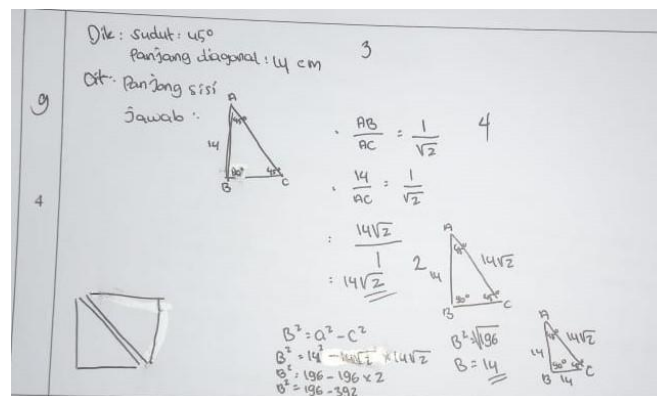 Dik : Sudut : 45°
Panjang diagonal : 14 cm
3
Dit : Panjang sisi
9
Jawab :
A
45°
14
90° 45°
B C
AB/AC = 1/√2
4
14/AC = 1/√2
4
: 14√2/1
= 14√2
2
A
45°
14 14√2
90° 45°
B C
B² = a² - c²
B² = 14² - 14√2 × 14√2
B² = 196 - 196 × 2
B² = 196 - 392
B² = √196
B = 14
A
45°
14 14√2
90° 45°
B 14 C